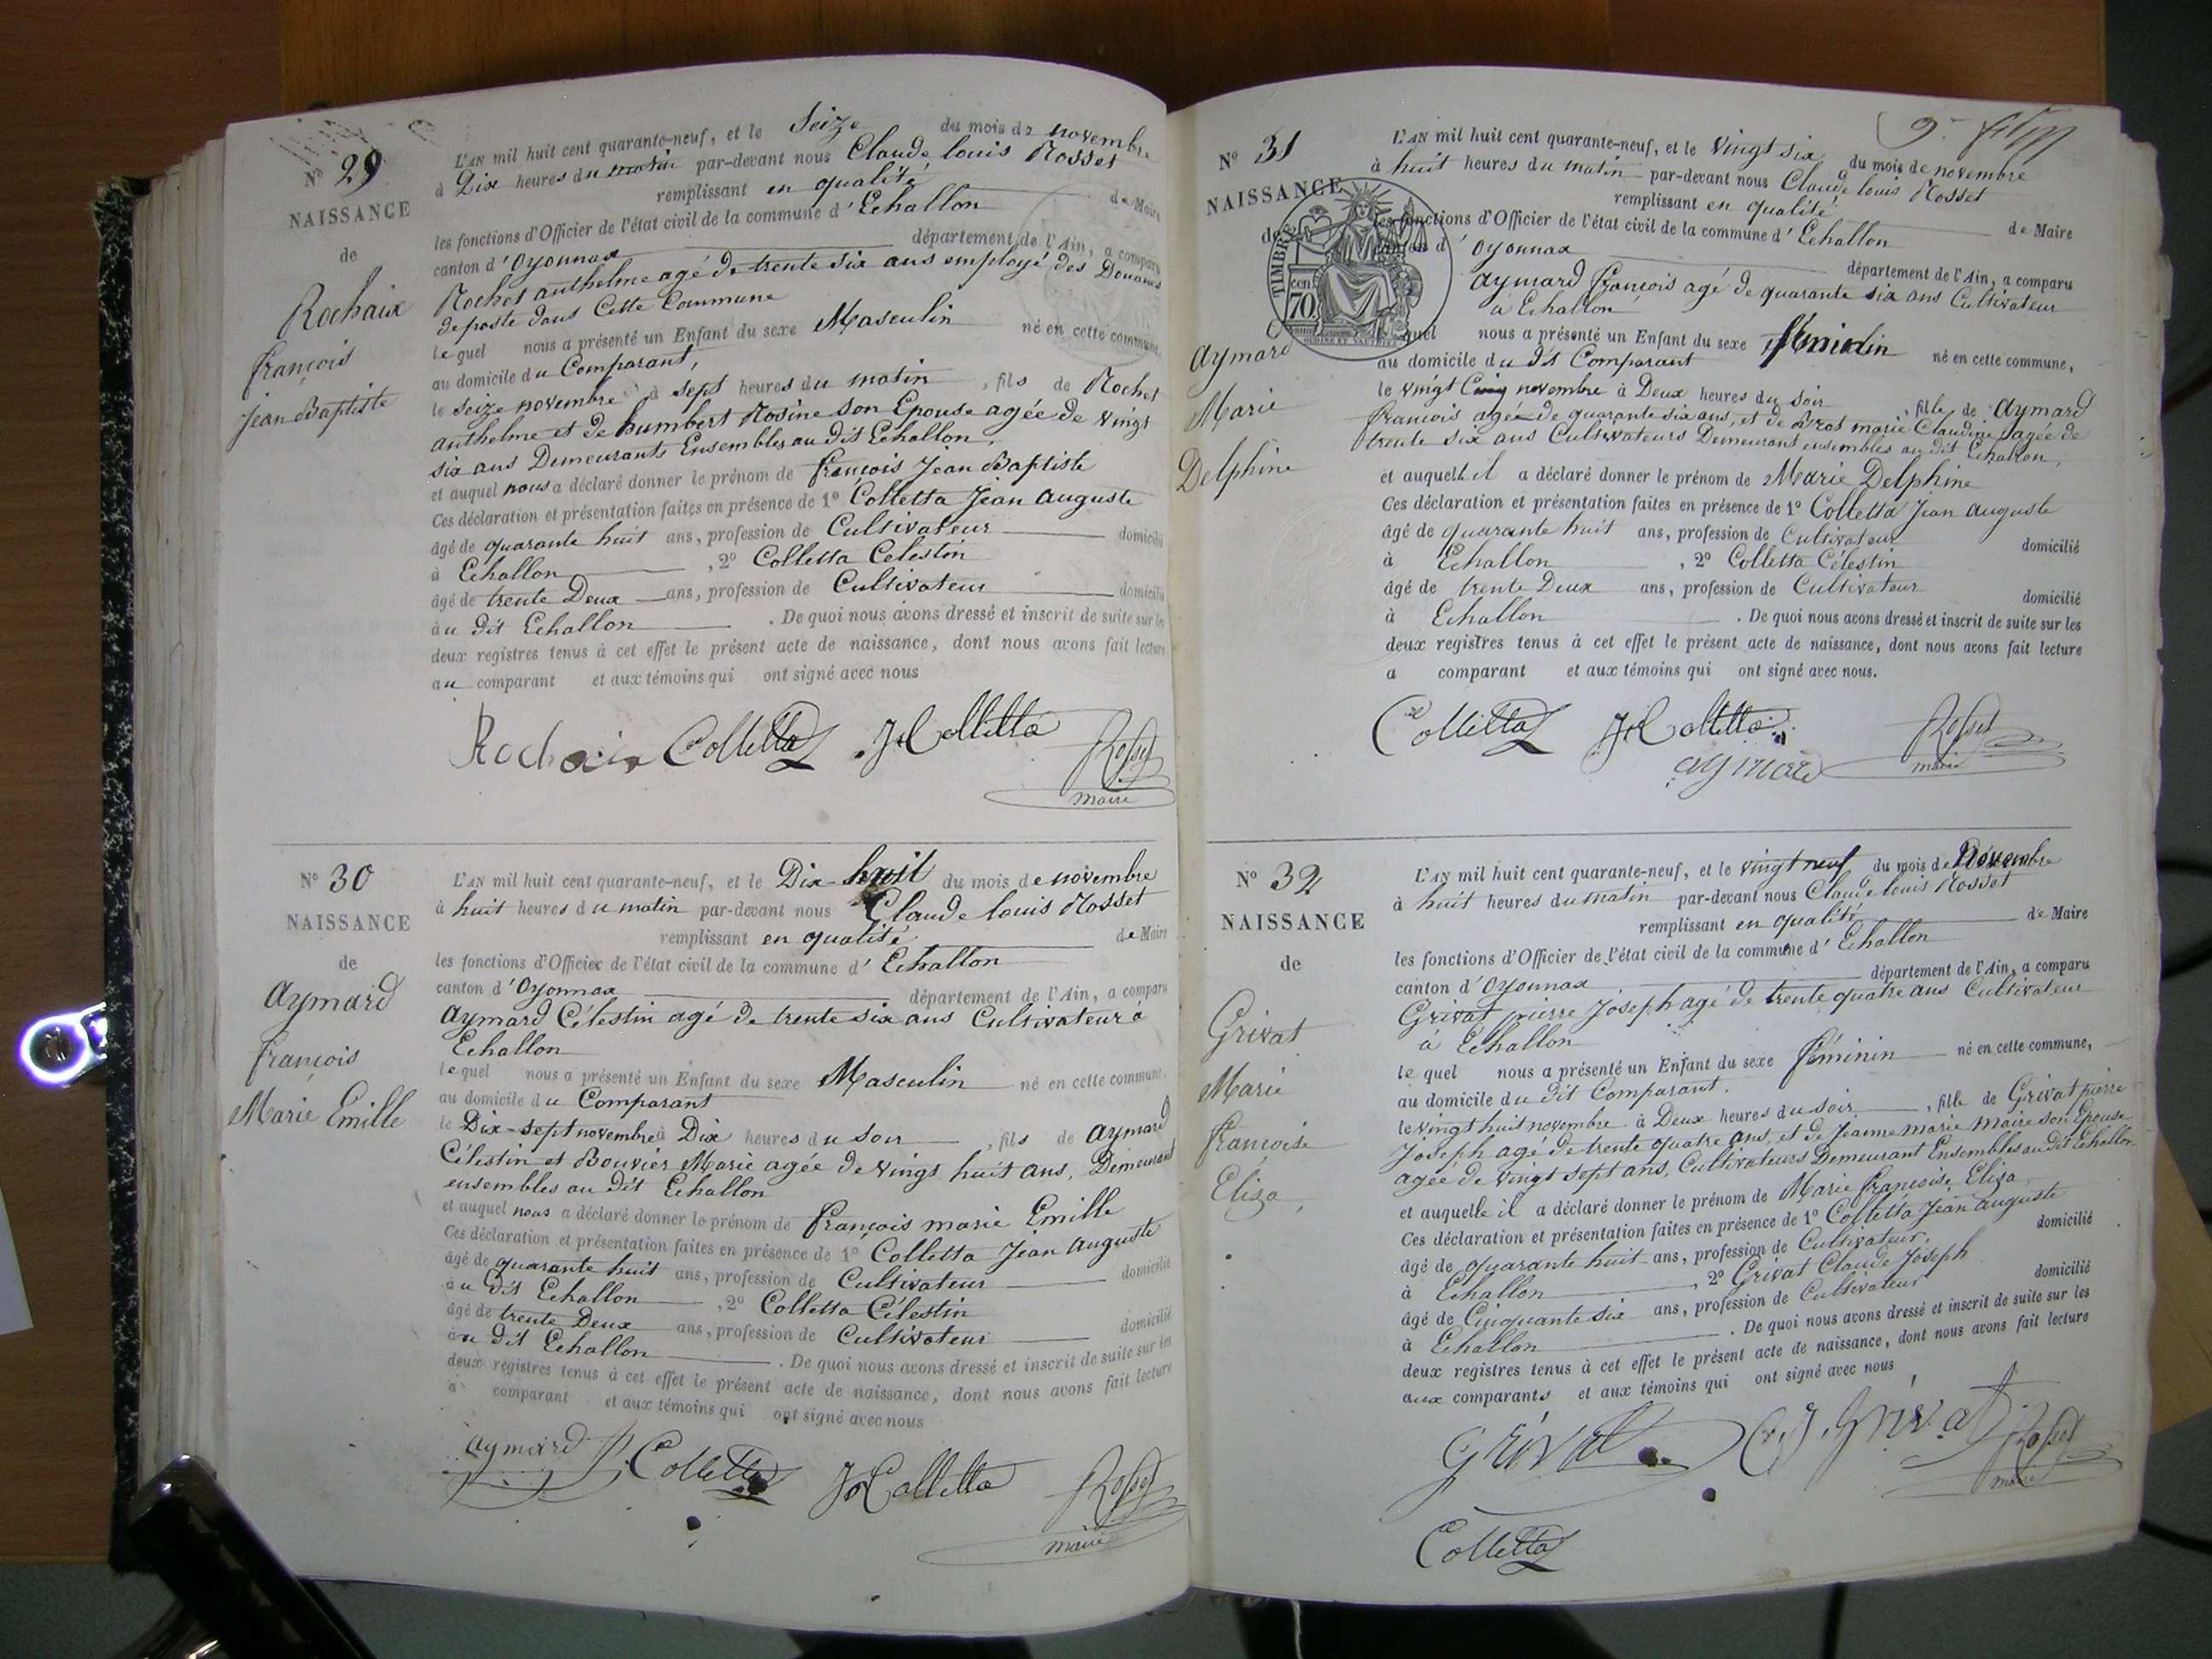 Nº 29
NAISSANCE
de
Rochaix
françois
jean Baptiste
L'AN mil huit cent quarante-neuf, et le Seize du mois de novembre
à Dix heures du matin par-devant nous Claude louis Rosset
remplissant en qualité de Maire
les fonctions d'Officier de l'état civil de la commune d'Echallon
canton d'Oyonnax département de l'Ain, a comparu
Rochet anthelme agé de trente six ans employé des Douanes
de poste dans Cette Commune
lequel nous a présenté un Enfant du sexe Masculin né en cette commune,
au domicile du Comparant,
le seize novembre à sept heures du matin, fils de Rochet
anthelme et de humbert Rosine son Epouse agée de vingt
six ans Demeurants Ensembles au dit Echallon.
et auquel nous a déclaré donner le prénom de françois Jean Baptiste
Ces déclaration et présentation faites en présence de 1º Colletta Jean Auguste
âgé de quarante huit ans, profession de Cultivateur domicilié
à Echallon, 2º Colletta Celestin
âgé de trente Deux ans, profession de Cultivateur domicilié
au dit Echallon. De quoi nous avons dressé et inscrit de suite sur les
deux registres tenus à cet effet le présent acte de naissance, dont nous avons fait lecture
au comparant et aux témoins qui ont signé avec nous
Rochaix Colletta JA Colletta Rosset
maire
Nº 30
NAISSANCE
de
Aymard
françois
Marie Emille
L'AN mil huit cent quarante-neuf, et le Dix-huit du mois de novembre
à huit heures du matin par-devant nous Claude louis Rosset
remplissant en qualité de Maire
les fonctions d'Officier de l'état civil de la commune d'Echallon
canton d'Oyonnax département de l'Ain, a comparu
Aymard Célestin agé de trente six ans Cultivateur à
Echallon
lequel nous a présenté un Enfant du sexe Masculin né en cette commune,
au domicile du Comparant
le Dix-sept novembre à Dix heures du soir, fils de Aymard
Célestin et Bouvier Marie agée de vingt huit ans, Demeurant
ensembles au dit Echallon
et auquel nous a déclaré donner le prénom de françois marie Emille
Ces déclaration et présentation faites en présence de 1º Colletta Jean Auguste
âgé de quarante huit ans, profession de Cultivateur domicilié
au dit Echallon, 2º Colletta Célestin
âgé de trente Deux ans, profession de Cultivateur domicilié
au dit Echallon. De quoi nous avons dressé et inscrit de suite sur les
deux registres tenus à cet effet le présent acte de naissance, dont nous avons fait lecture
a comparant et aux témoins qui ont signé avec nous
aymard Colletta JA Colletta Rosset
maire
Nº 31
NAISSANCE
de
Aymard
Marie
Delphine
TIMBRE
cen
70
L'AN mil huit cent quarante-neuf, et le vingt six du mois de novembre
à huit heures du matin par-devant nous Claude louis Rosset
remplissant en qualité de Maire
les fonctions d'Officier de l'état civil de la commune d'Echallon
canton d'Oyonnax département de l'Ain, a comparu
Aymard françois agé de quarante six ans Cultivateur
à Echallon
lequel nous a présenté un Enfant du sexe féminin né en cette commune,
au domicile du dit Comparant
le vingt Cinq novembre à Deux heures du soir, fille de Aymard
francois agée de quarante six ans, et de marie Claudine agée de
trente six ans Cultivateurs Demeurant ensembles au dit Echallon,
et auquelle il a déclaré donner le prénom de Marie Delphine
Ces déclaration et présentation faites en présence de 1º Colletta Jean auguste
âgé de quarante huit ans, profession de Cultivateur domicilié
à Echallon, 2º Colletta Célestin
âgé de trente Deux ans, profession de Cultivateur domicilié
à Echallon. De quoi nous avons dressé et inscrit de suite sur les
deux registres tenus à cet effet le présent acte de naissance, dont nous avons fait lecture
a comparant et aux témoins qui ont signé avec nous.
Colletta JA Colletta Rosset
aymard maire
Nº 32
NAISSANCE
de
Grivat
Marie
françoise
Eliza,
L'AN mil huit cent quarante-neuf, et le vingt neuf du mois de Novembre
à huit heures du matin par-devant nous Claude louis Rosset
remplissant en qualité de Maire
les fonctions d'Officier de l'état civil de la commune d'Echallon
canton d'Oyonnax département de l'Ain, a comparu
Grivat pierre Joseph agé de trente quatre ans Cultivateur
à Echallon
lequel nous a présenté un Enfant du sexe féminin né en cette commune,
au domicile du dit Comparant.
le vingt huit novembre à Deux heures du soir, fille de Grivat pierre
Joseph agé de trente quatre ans, et de Jeanne marie maire son Epouse
agée de vingt sept ans, Cultivateurs Demeurant Ensembles au dit Echallon
et auquelle il a déclaré donner le prénom de Marie françoise Eliza
Ces déclaration et présentation faites en présence de 1º Colletta Jean auguste
âgé de quarante huit ans, profession de Cultivateur, domicilié
à Echallon, 2º Grivat Claude Joseph
âgé de Cinquante six ans, profession de Cultivateur domicilié
à Echallon. De quoi nous avons dressé et inscrit de suite sur les
deux registres tenus à cet effet le présent acte de naissance, dont nous avons fait lecture
aux comparants et aux témoins qui ont signé avec nous
Grivat C. J. Grivat Rosset
maire
Colletta